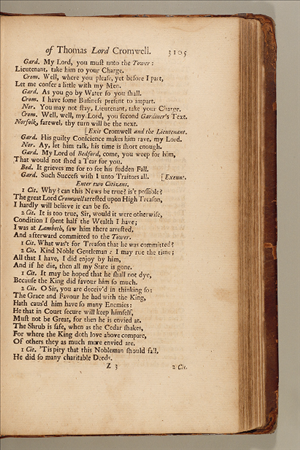 of Thomas Lord Cromwell. 3105
Gard. My Lord, you must unto the Tower:
Lieutenant, take him to your Charge.
Crom. Well, where you please, yet before I part,
Let me confer a little with my Men.
Gard. As you go by Water so you shall.
Crom. I have some Business present to impart.
Nor. You may not stay, Lieutenant, take your Charge.
Crom. Well, well, my Lord, you second Gardiner's Text.
Norfolk, farewel, thy turn will be the next.
[Exit Cromwell and the Lieutenant.
Gard. His guilty Conscience makes him rave, my Lord.
Nor. Ay, let him talk, his time is short enough.
Gard. My Lord of Bedford, come, you weep for him,
That would not shed a Tear for you.
Bed. It grieves me for to see his sudden Fall.
Gard. Such Success wish I unto Traitors all. [Exeunt.
Enter two Citizens.
1 Cit. Why? can this News be true? is't possible?
The great Lord Cromwell arrested upon High Treason,
I hardly will believe it can be so.
2 Cit. It is too true, Sir, would it were otherwise,
Condition I spent half the Wealth I have;
I was at Lambeth, saw him there arrested,
And afterward committed to the Tower.
1 Cit. What was't for Treason that he was committed?
2 Cit. Kind Noble Gentleman: I may rue the time;
All that I have, I did enjoy by him,
And if he die, then all my State is gone.
1 Cit. It may be hoped that he shall not dye,
Because the King did favour him so much.
2 Cit. O Sir, you are deceiv'd in thinking so;
The Grace and Favour he had with the King,
Hath caus'd him have so many Enemies:
He that in Court secure will keep himself,
Must not be Great, for then he is envied at.
The Shrub is safe, when as the Cedar shakes,
For where the King doth love above compare,
Of others they as much more envied are.
1 Cit. 'Tis pity that this Nobleman should fall,
He did so many charitable Deeds.
Z 3 2 Cit.